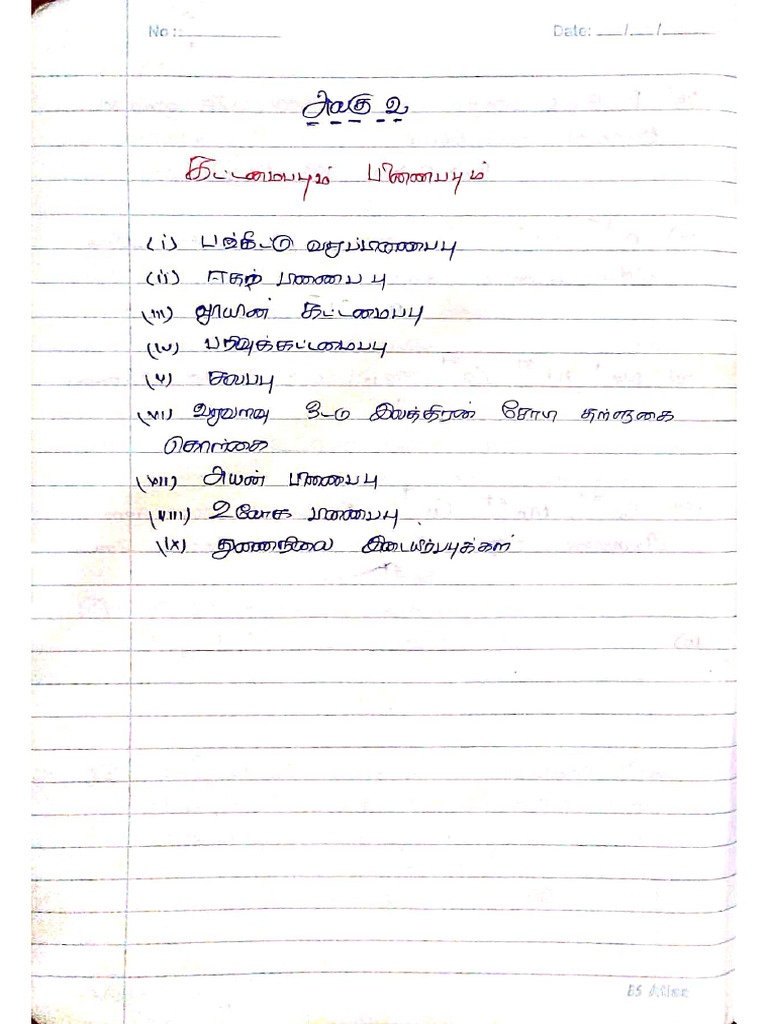 No :
Date: __/__/__
அலகு 2
கட்டமைப்பும் பிணைப்பும்
(i) பங்கீட்டு வலுப்பிணைப்பு
(ii) ஈதற் பிணைப்பு
(iii) லூயின் கட்டமைப்பு
(iv) பரிவுக்கட்டமைப்பு
(v) கலப்பு
(vi) வலுவளவு ஓட்டு இலத்திரன் சோடி தள்ளுகை
கொள்கை
(vii) அயன் பிணைப்பு
(viii) உலோக பிணைப்பு
(ix) துணைநிலை இடையீர்ப்புக்கள்